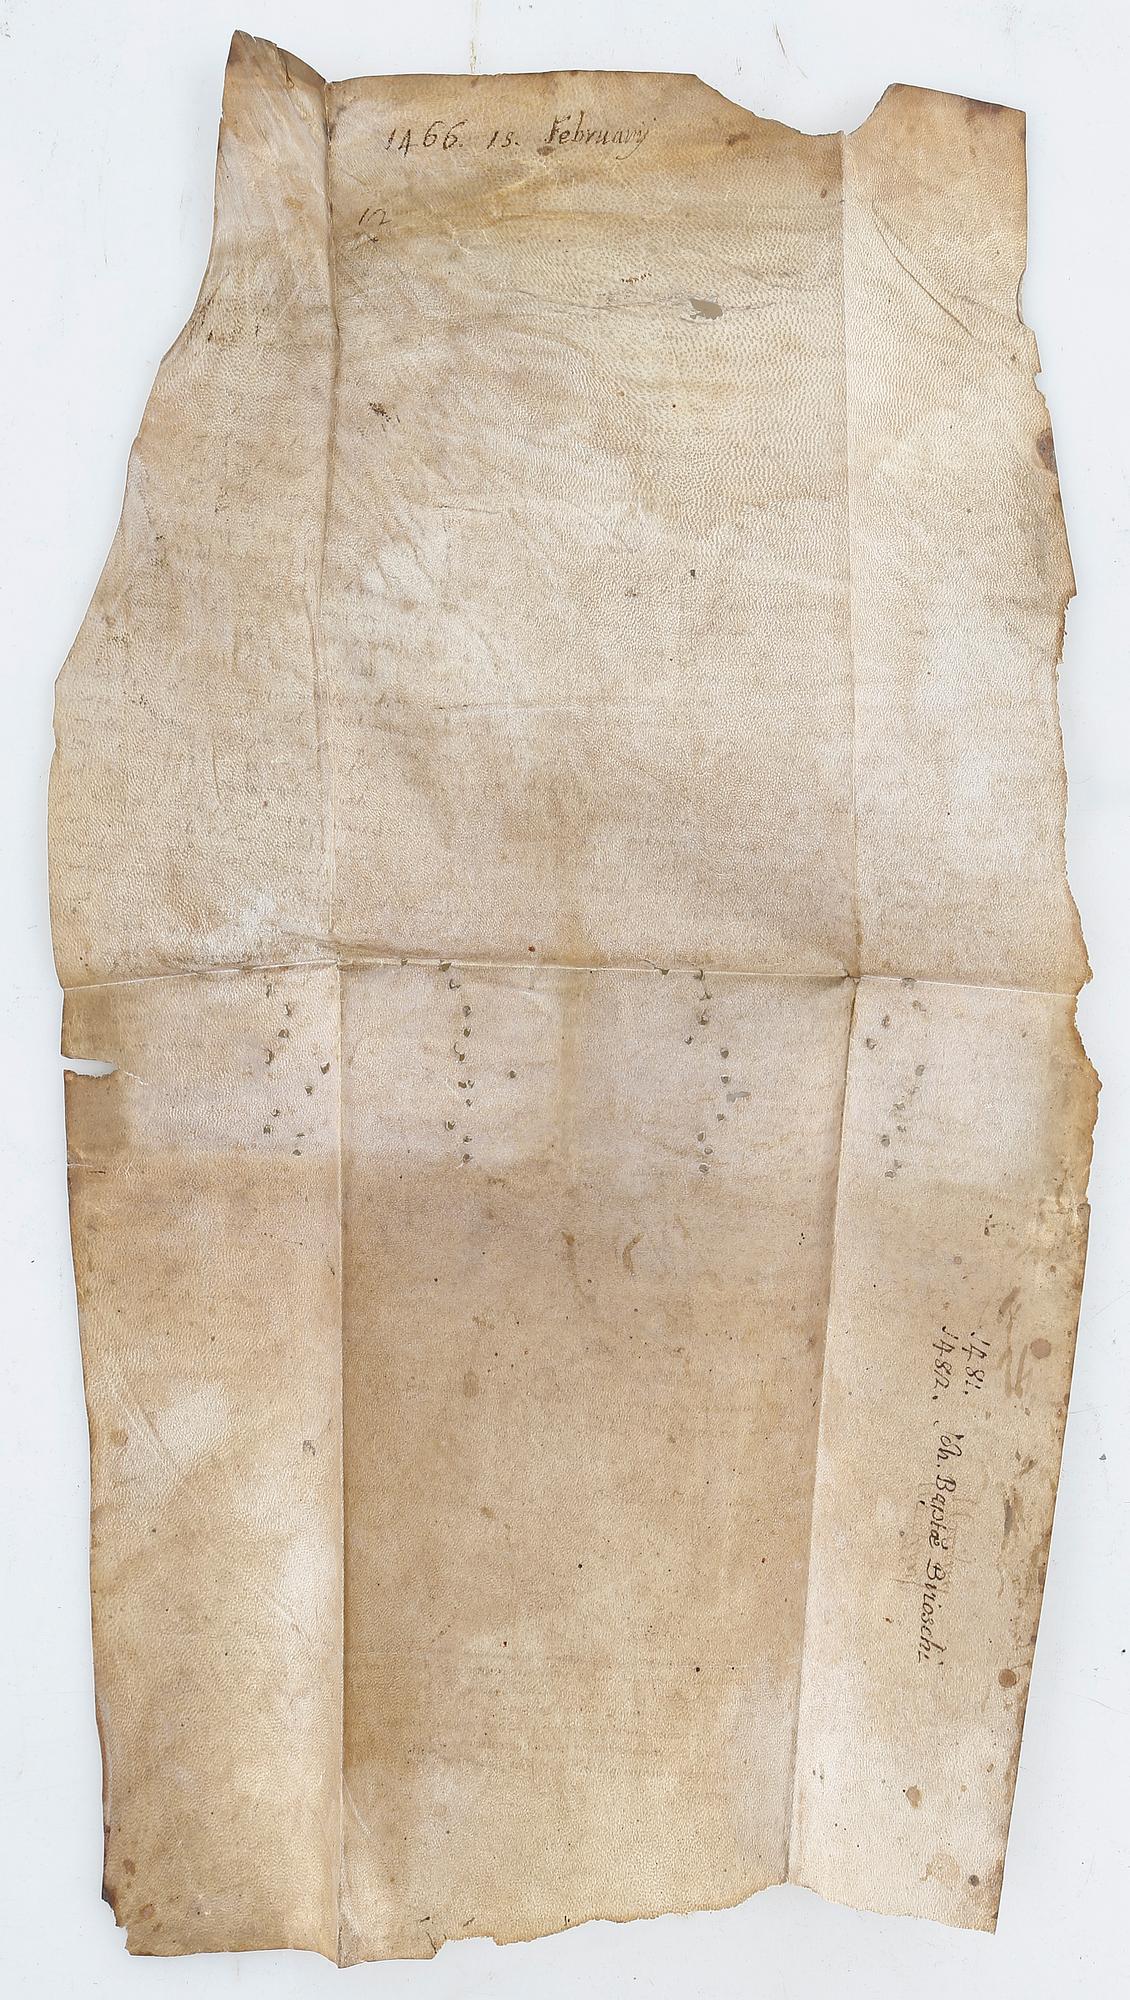 1466. 15. February
12
1481.
1482. Joh. Baptæ Binaschi